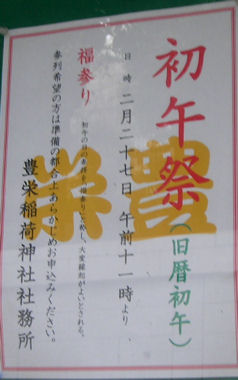 初午祭(旧暦初午)
日時 二月二十七日 午前十一時より
福参り 初午の日の参拝を福参りと称し、大変縁起がよいとされる。
参列希望の方は準備の都合上あらかじめお申込みください。
豊栄稲荷神社社務所
豊栄